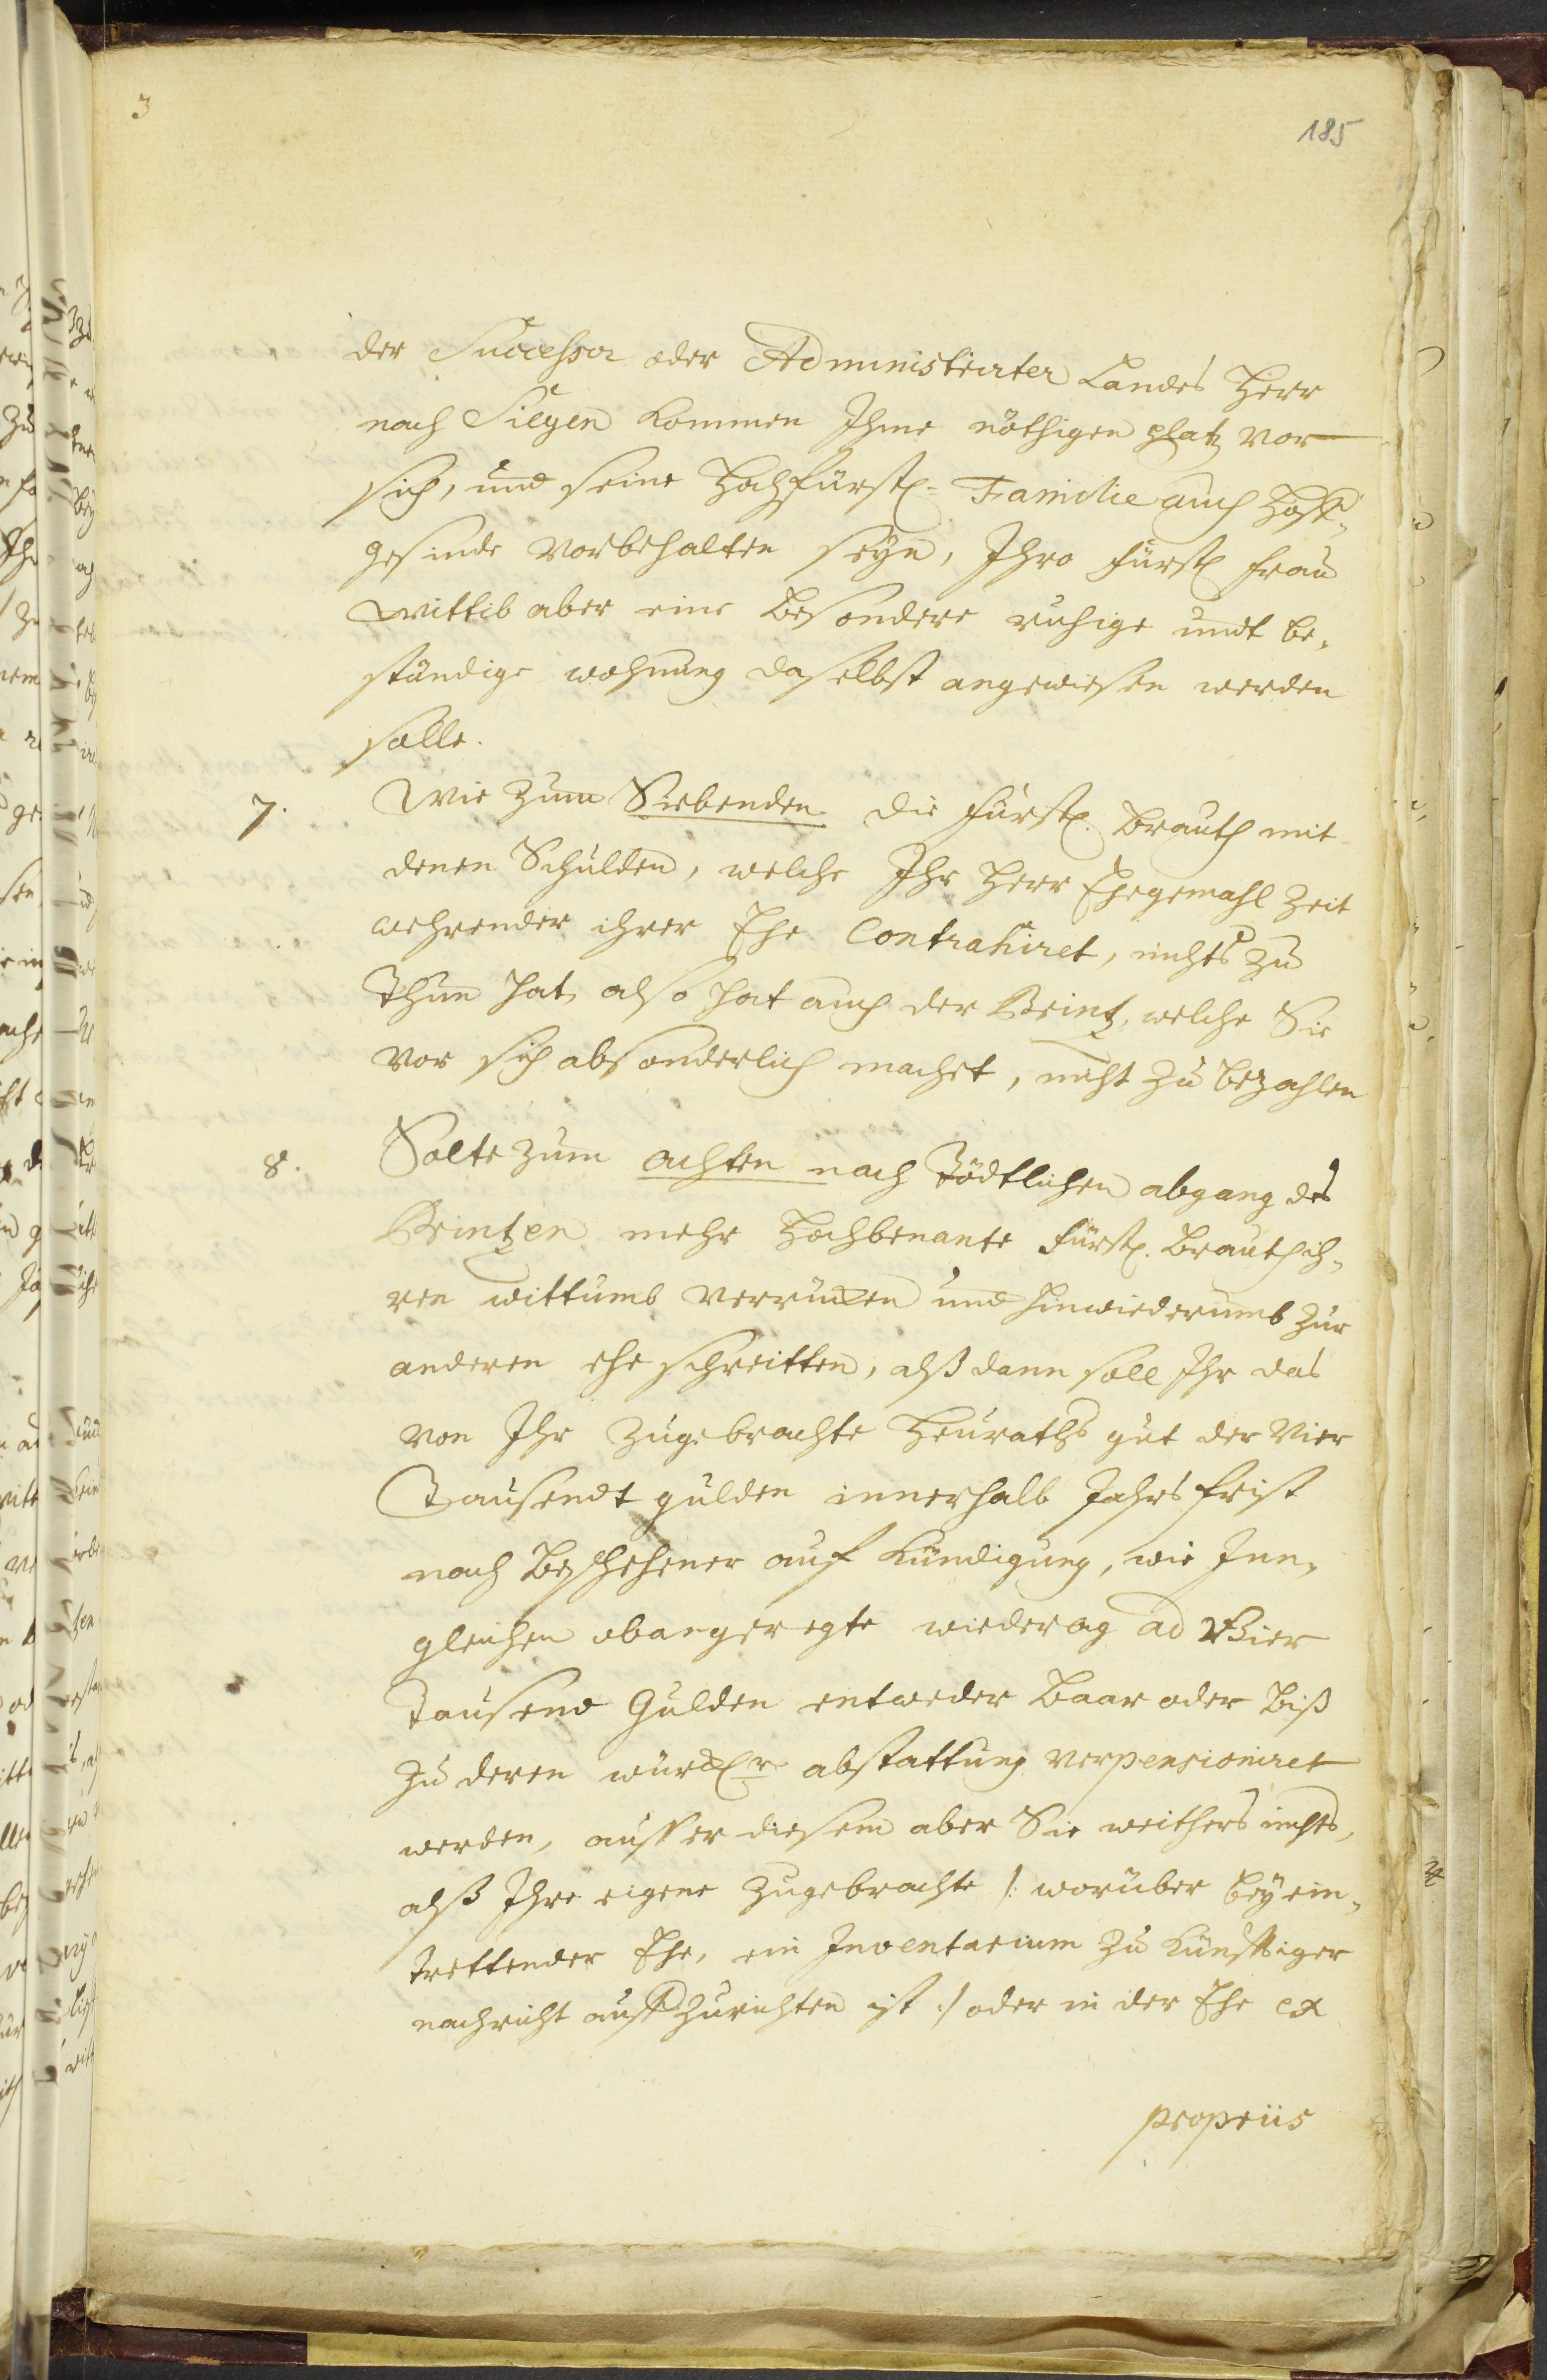 3
185
der Successor oder Administrator Landes Herr
nach Siegen kommen Ihme nöthigen platz vor
sich, und seine Hochfürstl. Familie auch Hoff-
gesinde vorbehalten seyn, Ihro fürstl Frau
Wittib aber eine besondere ruhige undt be-
ständige wohnung daselbst angewiesen werden
solle.
7. Wie zum Siebenden die fürstl. Brauth mit
denen Schulden, welche Ihr Herr Ehegemahl zeit
wehrender ihrer Ehe Contrahiret, nichts zu
Thun hat, also hat auch der Printz, welche Sie
vor sich absonderlich machet, nicht zu bezahlen
8. Solte zum achten nach Tödtlichen abgang des
Printzen mehr Hochbenante fürstl. Brauth ih-
ren wittumb verrucken und hinwiederumb zur
anderen ehe schreitten, alß dann soll Ihr das
von Ihr zugebrachte Heuraths gut der Vier
Tausendt gulden innerhalb Jahrs frist
nach beschehener auf kündigung, wie Inn-
gleichen obangeregte wiederlag ad Vier
Tausend Gulden entweder Baar oder biß
zu deren würckl.r abstattung verpensioniret
werden, ausser diesem aber Sie weithers nichts,
alß Ihre eigene zugebrachte /: worüber bey ein-
trettender Ehe, ein Inventarium zu künfftiger
nachricht auffzurichten ist :/ oder in der Ehe ex
propriis